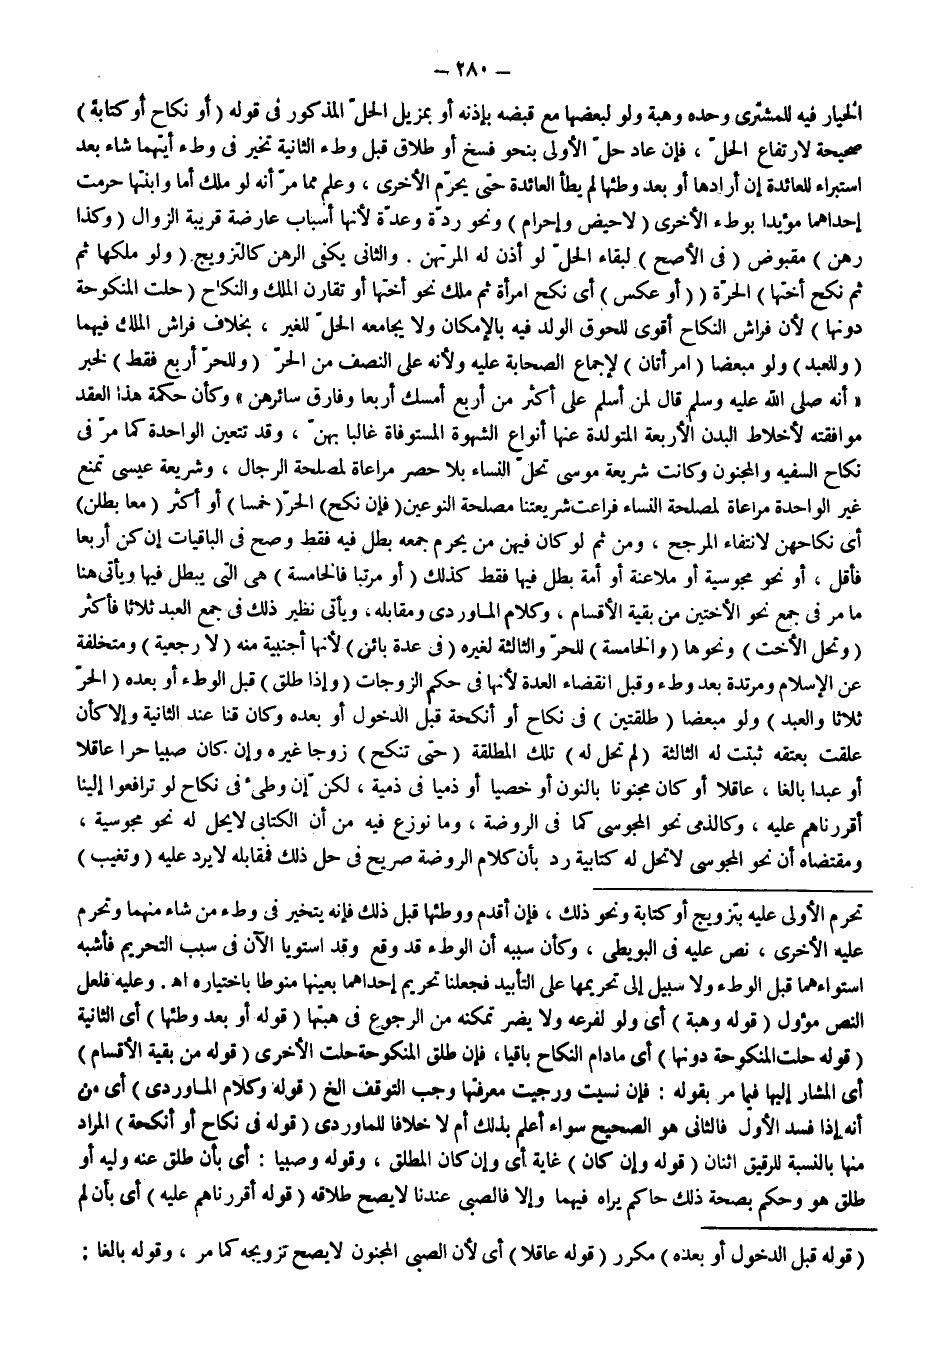 — ٢٨٠ —
الخيار فيه للمشترى وحده وهبة ولو لبعضها مع قبضه بإذنه أو بمزيل الحلّ المذكور فى قوله ( أو نكاح أو كتابة )
صحيحة لارتفاع الحلّ ، فإن عاد حلّ الأولى بنحو فسخ أو طلاق قبل وطء الثانية تخير فى وطء أيتهما شاء بعد
استبراء للعائدة إن أرادها أو بعد وطئها لم يطأ العائدة حتى يحرّم الأخرى ، وعلم مما مرّ أنه لو ملك أما وابنتها حرمت
إحداهما مؤبدا بوطء الأخرى ( لاحيض وإحرام ) ونحو ردّة وعدّة لأنها أسباب عارضة قريبة الزوال ( وكذا
رهن ) مقبوض ( فى الأصح ) لبقاء الحلّ لو أذن له المرتهن . والثانى يكفى الرهن كالتزويج . ( ولو ملكها ثم
ثم نكح أختها ) الحرّة ( ( أو عكس ) أى نكح امرأة ثم ملك نحو أختها أو تقارن الملك والنكاح ( حلت المنكوحة
دونها ) لأن فراش النكاح أقوى للحوق الولد فيه بالإمكان ولا يجامعه الحلّ للغير ، بخلاف فراش الملك فيهما
( وللعبد ) ولو مبعضا ( امرأتان ) لإجماع الصحابة عليه ولأنه على النصف من الحرّ ( وللحرّ أربع فقط ) لخبر
« أنه صلى الله عليه وسلم قال لمن أسلم على أكثر من أربع أمسك أربعا وفارق سائرهن » وكأن حكمة هذا العقد
موافقته لأخلاط البدن الأربعة المتولدة عنها أنواع الشهوة المستوفاة غالبا بهنّ ، وقد تتعين الواحدة كما مرّ فى
نكاح السفيه والمجنون وكانت شريعة موسى تحلّ النساء بلا حصر مراعاة لمصلحة الرجال ، وشريعة عيسى تمنع
غير الواحدة مراعاة لمصلحة النساء فراعت شريعتنا مصلحة النوعين ( فإن نكح ) الحرّ ( خمسا ) أو أكثر ( معا بطلن )
أى نكاحهن لانتفاء المرجح ، ومن ثم لو كان فيهن من يحرم جمعه بطل فيه فقط وصح فى الباقيات إن كن أربعا
فأقل ، أو نحو مجوسية أو ملاعنة أو أمة بطل فيها فقط كذلك ( أو مرتبا فالخامسة ) هى التى يبطل فيها ويأتى هنا
ما مر فى جمع نحو الأختين من بقية الأقسام ، وكلام الماوردى ومقابله ، ويأتى نظير ذلك فى جمع العبد ثلاثا فأكثر
( وتحل الأخت ) ونحوها ( والخامسة ) للحرّ والثالثة لغيره ( فى عدة بائن ) لأنها أجنبية منه ( لا رجعية ) ومتخلفة
عن الإسلام ومرتدة بعد وطء وقبل انقضاء العدة لأنها فى حكم الزوجات ( وإذا طلق ) قبل الوطء أو بعده ( الحرّ
ثلاثا والعبد ) ولو مبعضا ( طلقتين ) فى نكاح أو أنكحة قبل الدخول أو بعده وكان قنا عند الثانية وإلا كأن
علقت بعتقه ثبتت له الثالثة ( لم تحل له ) تلك المطلقة ( حتى تنكح ) زوجا غيره وإن كان صبيا حرا عاقلا
أو عبدا بالغا ، عاقلا أو كان مجنونا بالنون أو خصيا أو ذميا فى ذمية ، لكن إن وطئ فى نكاح لو ترافعوا إلينا
أقررناهم عليه ، وكالذمى نحو المجوسى كما فى الروضة ، وما نوزع فيه من أن الكتابى لايحل له نحو مجوسية ،
ومقتضاه أن نحو المجوسى لاتحل له كتابية رد بأن كلام الروضة صريح فى حل ذلك فمقابله لايرد عليه ( وتغيب )
تحرم الأولى عليه بتزويج أو كتابة ونحو ذلك ، فإن أقدم ووطئها قبل ذلك فإنه يتخير فى وطء من شاء منهما وتحرم
عليه الأخرى ، نص عليه فى البويطى ، وكأن سببه أن الوطء قد وقع وقد استويا الآن فى سبب التحريم فأشبه
استواءهما قبل الوطء ولا سبيل إلى تحريمها على التأبيد فجعلنا تحريم إحداهما بعينها منوطا باختياره اه . وعليه فلعل
النص مؤول ( قوله وهبة ) أى ولو لفرعه ولا يضر تمكنه من الرجوع فى هبتها ( قوله أو بعد وطئها ) أى الثانية
( قوله حلت المنكوحة دونها ) أى مادام النكاح باقيا ، فإن طلق المنكوحة حلت الأخرى ( قوله من بقية الأقسام )
أى المشار إليها فيما مر بقوله : فإن نسيت ورجيت معرفتها وجب التوقف الخ ( قوله وكلام الماوردى ) أى من
أنه إذا فسد الأول فالثانى هو الصحيح سواء أعلم بذلك أم لا خلافا للماوردى ( قوله فى نكاح أو أنكحة ) المراد
منها بالنسبة للرقيق اثنان ( قوله وإن كان ) غاية أى وإن كان المطلق ، وقوله وصبيا : أى بأن طلق عنه وليه أو
طلق هو وحكم بصحة ذلك حاكم يراه فيهما وإلا فالصبى عندنا لايصح طلاقه ( قوله أقررناهم عليه ) أى بأن لم
( قوله قبل الدخول أو بعده ) مكرر ( قوله عاقلا ) أى لأن الصبى المجنون لايصح تزويجه كما مر ، وقوله بالغا :